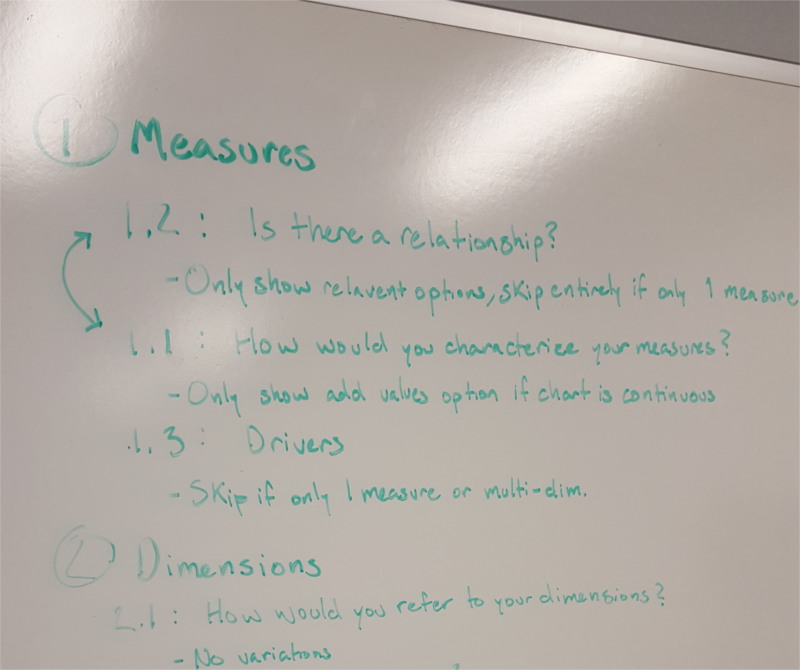 1 Measures
1.2: Is there a relationship?
-Only show relavent options, skip entirely if only 1 measure
1.1: How would you characterize your measures?
-Only show add values option if chart is continuous
1.3: Drivers
-Skip if only 1 measure or multi-dim.
2 Dimensions
2.1: How would you refer to your dimensions?
-No variations